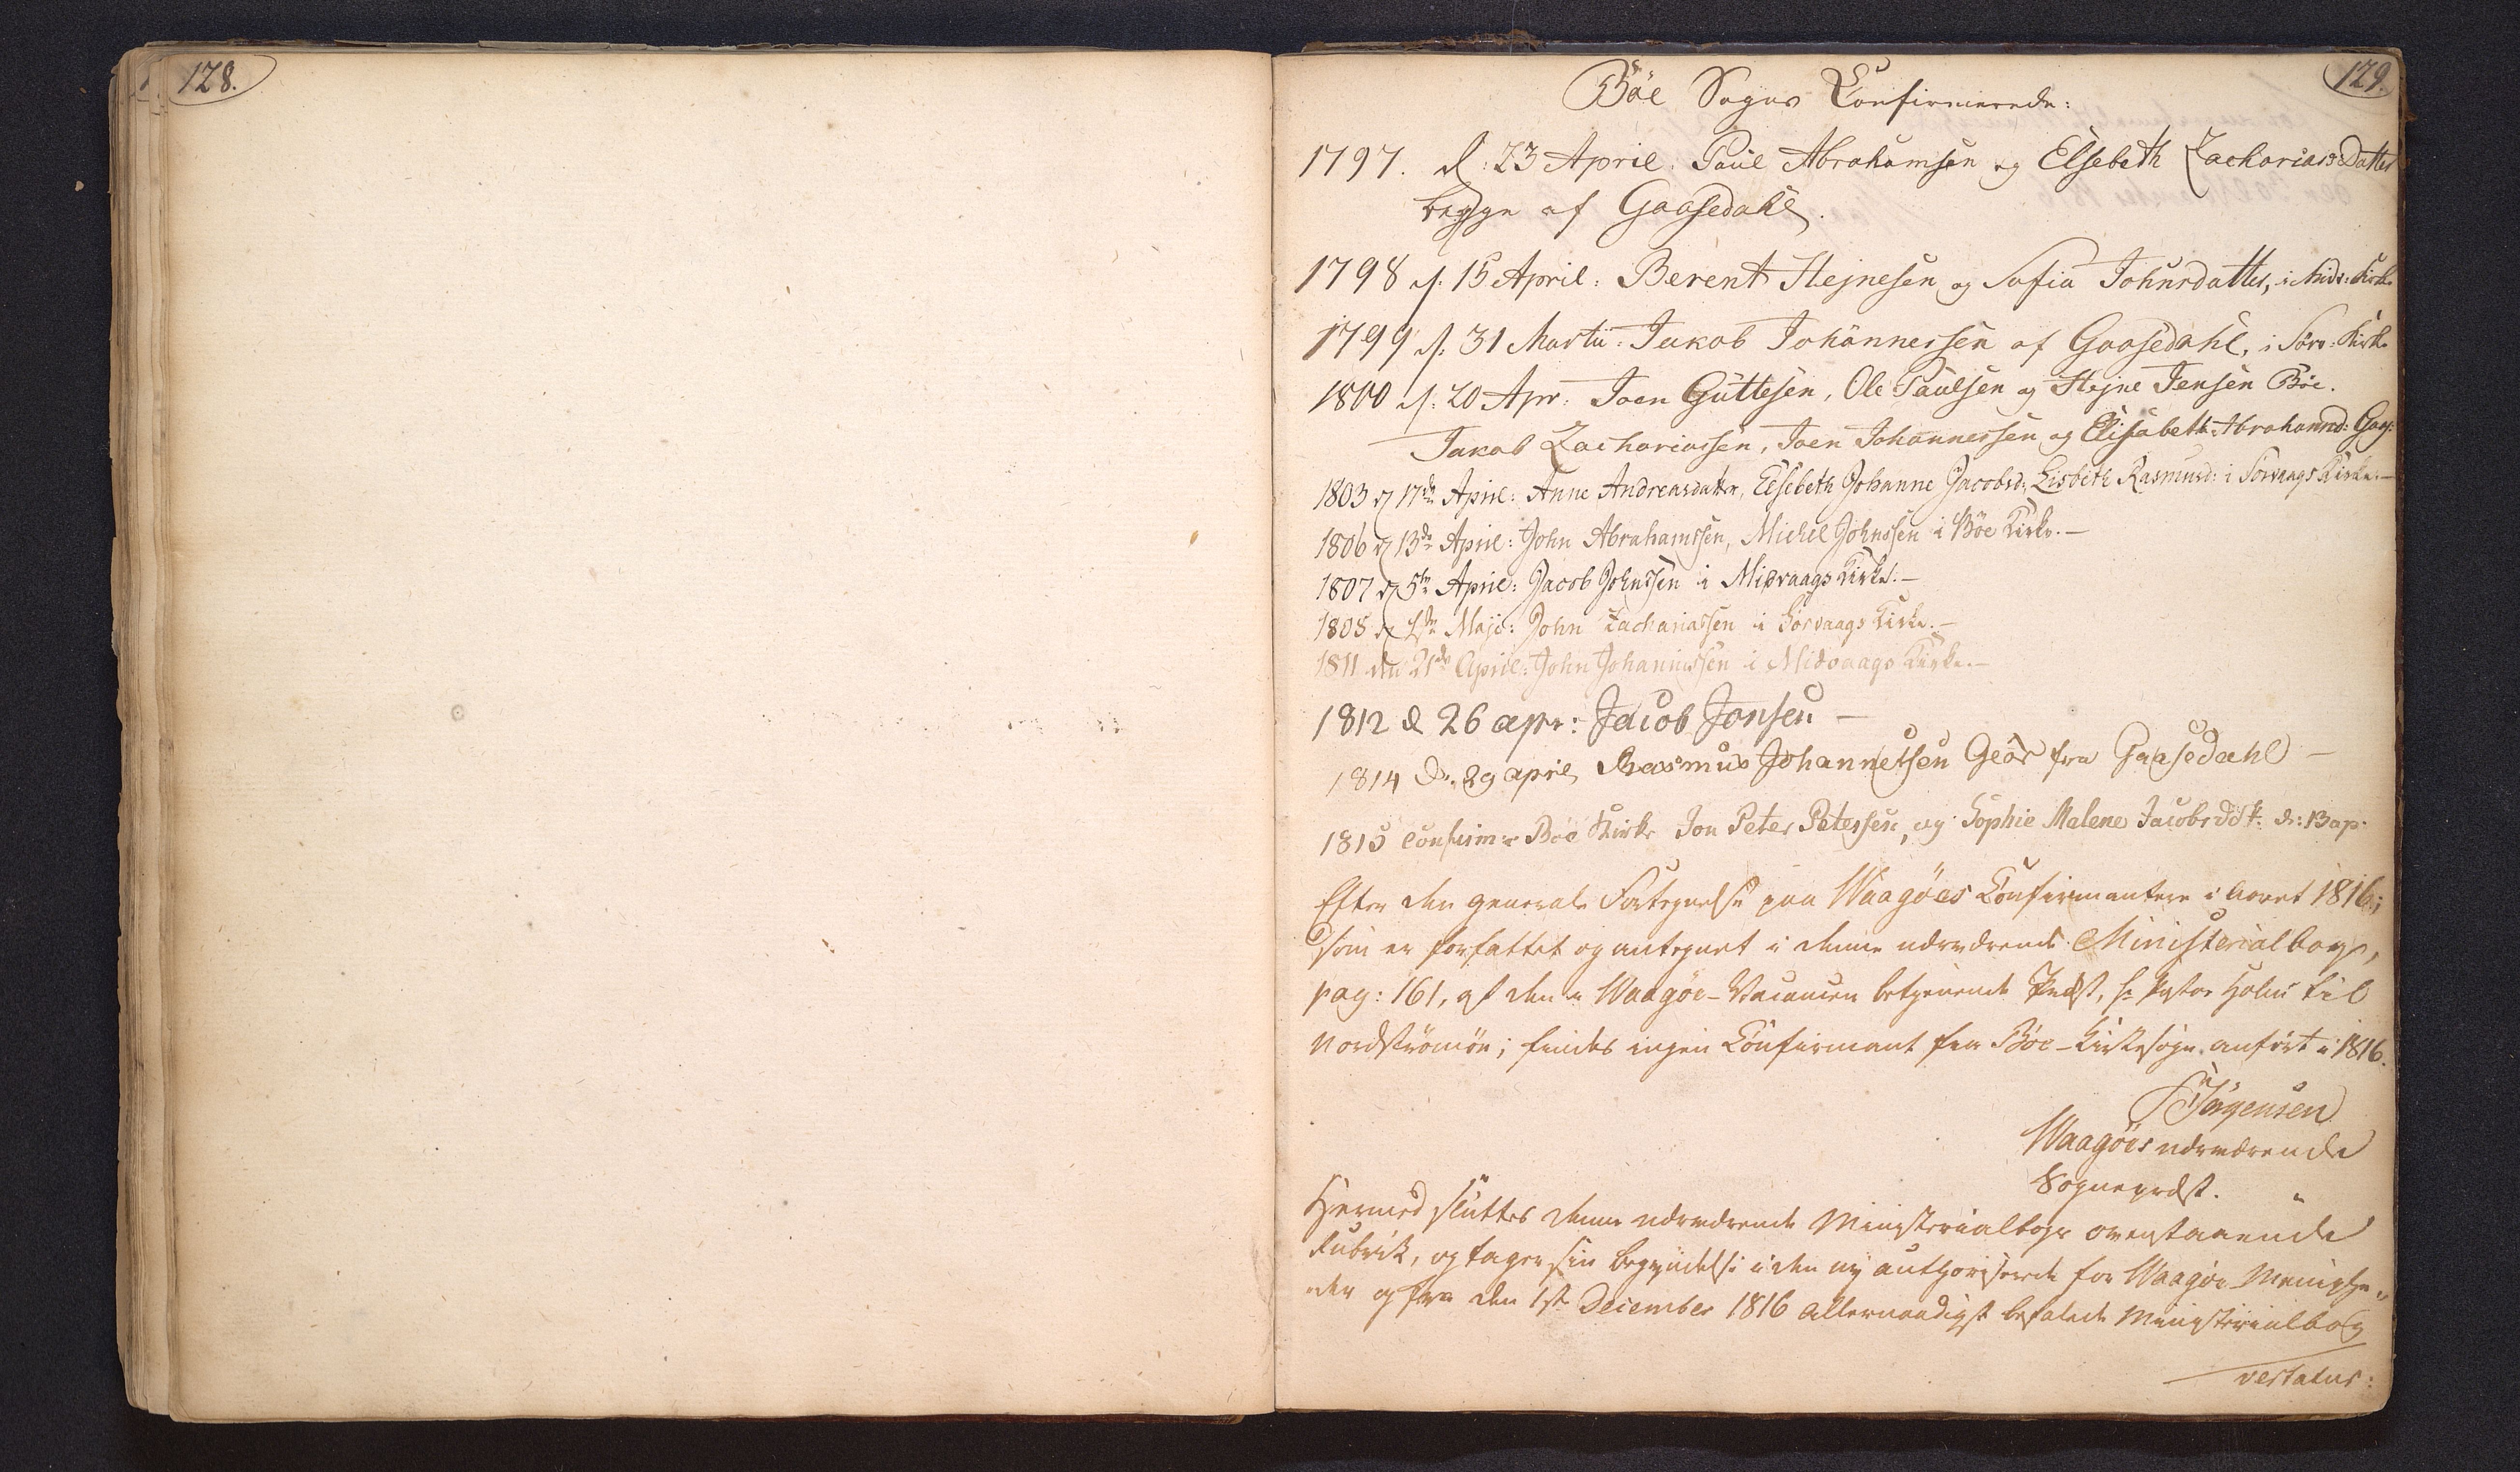 128.
129.
Böe Sogns Confirmerede:
1797. d: 23 April. Paul Abrahamsen og Elsebeth Zachariasdatter
begge af Gaasedahl.
1798 d. 15 April: Berent Hejnesen og Sofia Johnsdatter, i Midv: Kirke
1799 d. 31 Martii: Jakob Johannessen af Gaasedahl, i Sörv: Kirke
1800 d. 20 Apr. Joen Guttesen, Ole Paulsen og Hejne Jensen Böe.
Jakob Zachariassen, Joen Johannessen og Elisabeth Abrahamsd: Gaas:
1803 d 17de April: Anne Andreasdatter, Elsebeth Johanne Jacobsd, Lisbeth Rasmusd: i Sörvaags Kirke.—
1806 d 13de April: John Abrahamsen, Michel Johnssen i Böe Kirke.—
1807 d 5te April: Jacob Johnssen i Midvaags Kirke.—
1808 d 1ste Maji: John Zachariassen i Sörvaags Kirke.—
1811 den 21de April: John Johannessen i Midvaags Kirke.—
1812 d 26 apr: Jacob Jonsen —
1814 d. 29 april Rasmus Johannesen fra Gaasedahl —
1815 confirm: Böe Kirke Jon Peter Petersen, og Sophie Malene Jacobsdt: d: 13 ap:
Efter den generale Fortegnelse paa Waagöes Confirmantere i Aaret 1816;
som er forfattet og antegnet i denne nærværende Ministerialbog,
pag: 161, af den i Waagöe-Vacancen betienende Præst, Hr Pastor Holm til
Nordströmöe; findes ingen Confirmant fra Böe-Kirkesogn anfört i 1816.
Jörgensen
Waagöes nærværende
Sognepræst.
Hermed sluttes denne nærværende Ministerialbogs ovenstaaende
Rubrik, og tager sin Begyndelse i den ny authoriserede for Waagöe Menighe-
der og fra den 1ste December 1816 allernaadigst befalede Ministerialbog
vertatur: